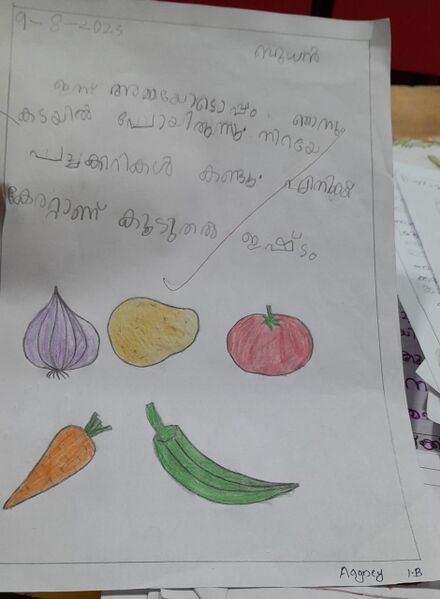 9-8-2023
ബുധൻ
ഇന്ന് അമ്മയോടൊപ്പം ഞാനും
കടയിൽ പോയിരുന്നു. നിറയേ
പച്ചക്കറികൾ കണ്ടു. എനിക്ക്
കേരറ്റാണ് കൂടുതൽ ഇഷ്ടം
Aagney 1.B